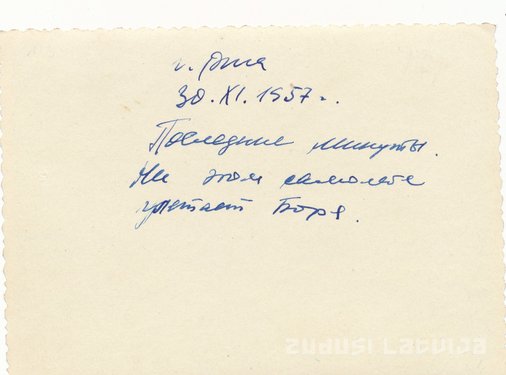 г. Рига
30. XI. 1957 г.
Последние минуты.
На этом самолете
улетает Боря.
Zudusi Latvija